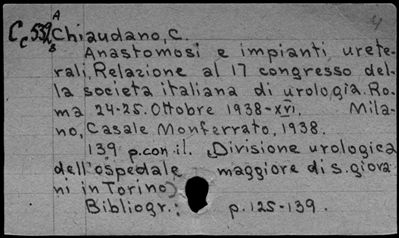 Cc539 A8 Chiaudano, C.
Anastomosi e impianti urete-
rali. Relazione al 17 congresso del-
la società italiana di urologia. Ro-
ma 24-25. Ottobre 1938-XVI. Mila-
no, Casale Monferrato, 1938.
139 p. con il. (Divisione urologica
dell'ospedale maggiore di s. giova
ni in Torino)
Bibliogr.: p. 125-139.